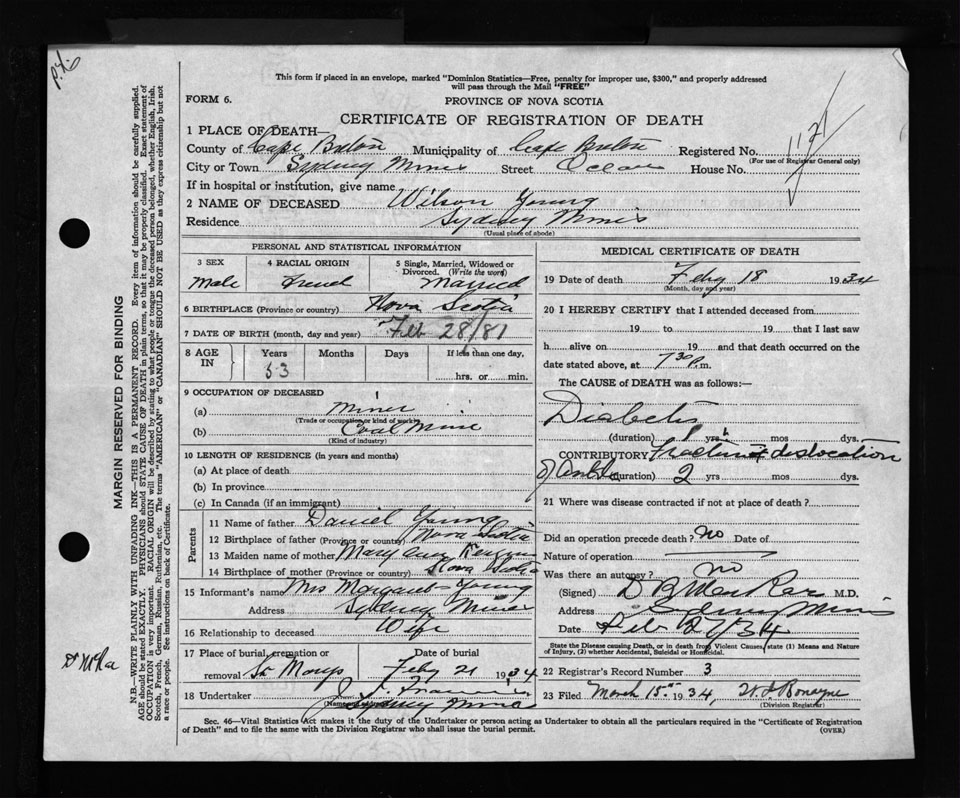 P.4.
This form if placed in an envelope, marked "Dominion Statistics—Free, penalty for improper use, $300," and properly addressed
will pass through the Mail "FREE"
FORM 6.
PROVINCE OF NOVA SCOTIA
CERTIFICATE OF REGISTRATION OF DEATH
1 PLACE OF DEATH—
County of Cape Breton Municipality of Cape Breton Registered No.
1121
(For use of Registrar General only)
City or Town Sydney Mines Street Ocean House No.
If in hospital or institution, give name
2 NAME OF DECEASED Wilson Young
Residence Sydney Mines
(Usual place of abode)
PERSONAL AND STATISTICAL INFORMATION
3 SEX 4 RACIAL ORIGIN 5 Single, Married, Widowed or Divorced. (Write the word)
Male French Married
6 BIRTHPLACE (Province or country) Nova Scotia
7 DATE OF BIRTH (month, day and year) Feb 28/81
8 AGE IN Years Months Days If less than one day,
53 hrs. or min.
9 OCCUPATION OF DECEASED
(a) Miner
(Trade or occupation or kind of work)
(b) Coal Mine
(Kind of industry)
10 LENGTH OF RESIDENCE (in years and months)
(a) At place of death
(b) In province
(c) In Canada (if an immigrant)
Parents
11 Name of father Daniel Young
12 Birthplace of father (Province or country) Nova Scotia
13 Maiden name of mother Mary Ann
14 Birthplace of mother (Province or country) Nova Scotia
15 Informant's name Mrs Margaret Young
Address Sydney Mines
16 Relationship to deceased Wife
17 Place of burial, cremation or removal St Marys Date of burial Feby 21 1934
18 Undertaker
(Name and address) Sydney Mines
MEDICAL CERTIFICATE OF DEATH
19 Date of death Feby 18 1934
(Month, day and year)
20 I HEREBY CERTIFY that I attended deceased from
19 to 19 that I last saw
h alive on 19 and that death occurred on the
date stated above, at 7 30 P.m.
The CAUSE of DEATH was as follows:—
Diabetes
(duration) 1 yrs mos dys.
CONTRIBUTORY Fracture & dislocation
of ankle (duration) 2 yrs mos dys.
21 Where was disease contracted if not at place of death?
Did an operation precede death? no Date of
Nature of operation
Was there an autopsy? no
(Signed) M.D.
Address Sydney Mines
Date Feb 27/34
State the Disease causing Death, or in death from Violent Causes, state (1) Means and Nature
of Injury, (2) whether Accidental, Suicidal or Homicidal.
22 Registrar's Record Number 3
23 Filed March 15 1934,
(Division Registrar)
Sec. 46—Vital Statistics Act makes it the duty of the Undertaker or person acting as Undertaker to obtain all the particulars required in the "Certificate of Registration
of Death" and to file the same with the Division Registrar who shall issue the burial permit.
(OVER)
MARGIN RESERVED FOR BINDING
N.B.—WRITE PLAINLY WITH UNFADING INK—THIS IS A PERMANENT RECORD. Every item of information should be carefully supplied.
AGE should be stated EXACTLY. PHYSICIANS should STATE CAUSE OF DEATH in plain terms, so that it may be properly classified. Exact statement of
OCCUPATION is very important. RACIAL ORIGIN will be described by stating to what people or tongue the deceased person belonged, whether English, Irish,
Scotch, French, German, Russian, Ruthenian, etc. The terms "AMERICAN" or "CANADIAN" SHOULD NOT BE USED as they express citizenship but not
a race or people. See instructions on back of Certificate.